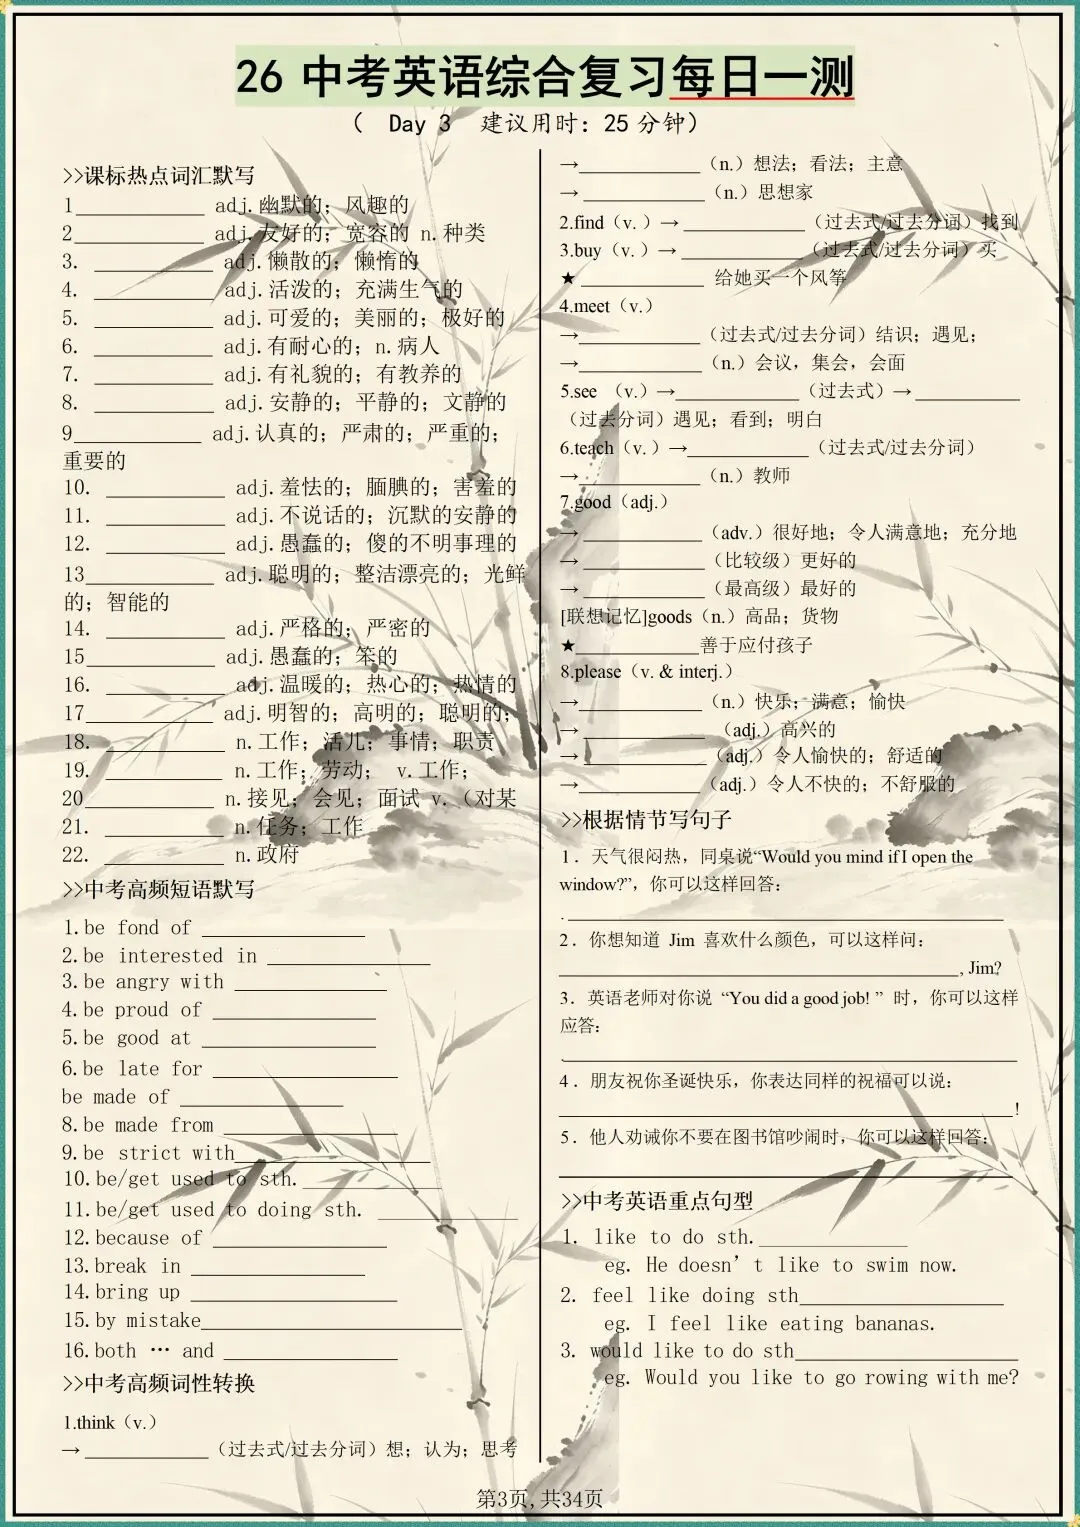 26 中考英语综合复习每日一测
（ Day 3 建议用时：25 分钟）
>>课标热点词汇默写
1____________ adj.幽默的；风趣的
2____________ adj.友好的；宽容的 n.种类
3. ___________ adj.懒散的；懒惰的
4. ___________ adj.活泼的；充满生气的
5. ___________ adj.可爱的；美丽的；极好的
6. ___________ adj.有耐心的；n.病人
7. ___________ adj.有礼貌的；有教养的
8. ___________ adj.安静的；平静的；文静的
9____________ adj.认真的；严肃的；严重的；
重要的
10. ___________ adj.羞怯的；腼腆的；害羞的
11. ___________ adj.不说话的；沉默的安静的
12. ___________ adj.愚蠢的；傻的不明事理的
13____________ adj.聪明的；整洁漂亮的；光鲜
的；智能的
14. ___________ adj.严格的；严密的
15____________ adj.愚蠢的；笨的
16. ___________ adj.温暖的；热心的；热情的
17____________ adj.明智的；高明的；聪明的；
18. ___________ n.工作；活儿；事情；职责
19. ___________ n.工作；劳动； v.工作；
20____________ n.接见；会见；面试 v.（对某
21. ___________ n.任务；工作
22. ___________ n.政府
>>中考高频短语默写
1.be fond of _______________
2.be interested in _______________
3.be angry with ______________
4.be proud of _______________
5.be good at ________________
6.be late for _________________
be made of _______________
8.be made from ________________
9.be strict with__________________
10.be/get used to sth. _____________
11.be/get used to doing sth. _____________
12.because of ________________
13.break in ________________
14.bring up ___________________
15.by mistake________________________
16.both … and ________________
>>中考高频词性转换
1.think（v.）
→ _____________（过去式/过去分词）想；认为；思考
→_____________（n.）想法；看法；主意
→ _____________（n.）思想家
2.find（v. ）→ _____________（过去式/过去分词）找到
3.buy（v. ）→ _____________（过去式/过去分词）买
★ ________________ 给她买一个风筝
4.meet（v.）
→_____________（过去式/过去分词）结识；遇见；
→_____________（n.）会议，集会，会面
5.see （v.）→_____________（过去式）→ ___________
（过去分词）遇见；看到；明白
6.teach（v. ）→_____________（过去式/过去分词）
→_____________（n.）教师
7.good（adj.）
→ _____________（adv.）很好地；令人满意地；充分地
→ _____________（比较级）更好的
→ _____________（最高级）最好的
[联想记忆]goods（n.）商品；货物
★_____________善于应付孩子
8.please（v. & interj.）
→_____________（n.）快乐；满意；愉快
→ _____________ （adj.）高兴的
→ ________________（adj.）令人愉快的；舒适的
→_____________（adj.）令人不快的；不舒服的
>>根据情节写句子
1．天气很闷热，同桌说“Would you mind if I open the
window?”，你可以这样回答：
. ______________________________________________
2．你想知道 Jim 喜欢什么颜色，可以这样问：
__________________________________________, Jim?
3．英语老师对你说 “You did a good job! ” 时，你可以这样
应答：
.________________________________________________
4．朋友祝你圣诞快乐，你表达同样的祝福可以说：
________________________________________________!
5．他人劝诫你不要在图书馆吵闹时，你可以这样回答：
________________________________________________
>>中考英语重点句型
1. like to do sth.______________
eg. He doesn’t like to swim now.
2. feel like doing sth___________________
eg. I feel like eating bananas.
3. would like to do sth_____________________
eg. Would you like to go rowing with me?
第3页,共34页